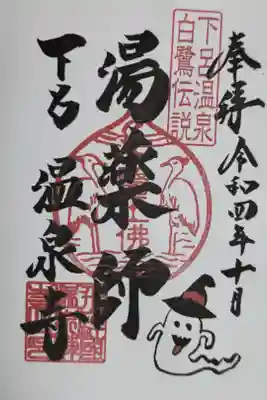 奉拝 令和四年十月
下呂温泉
白鷺伝説
湯薬師
下呂
温泉寺